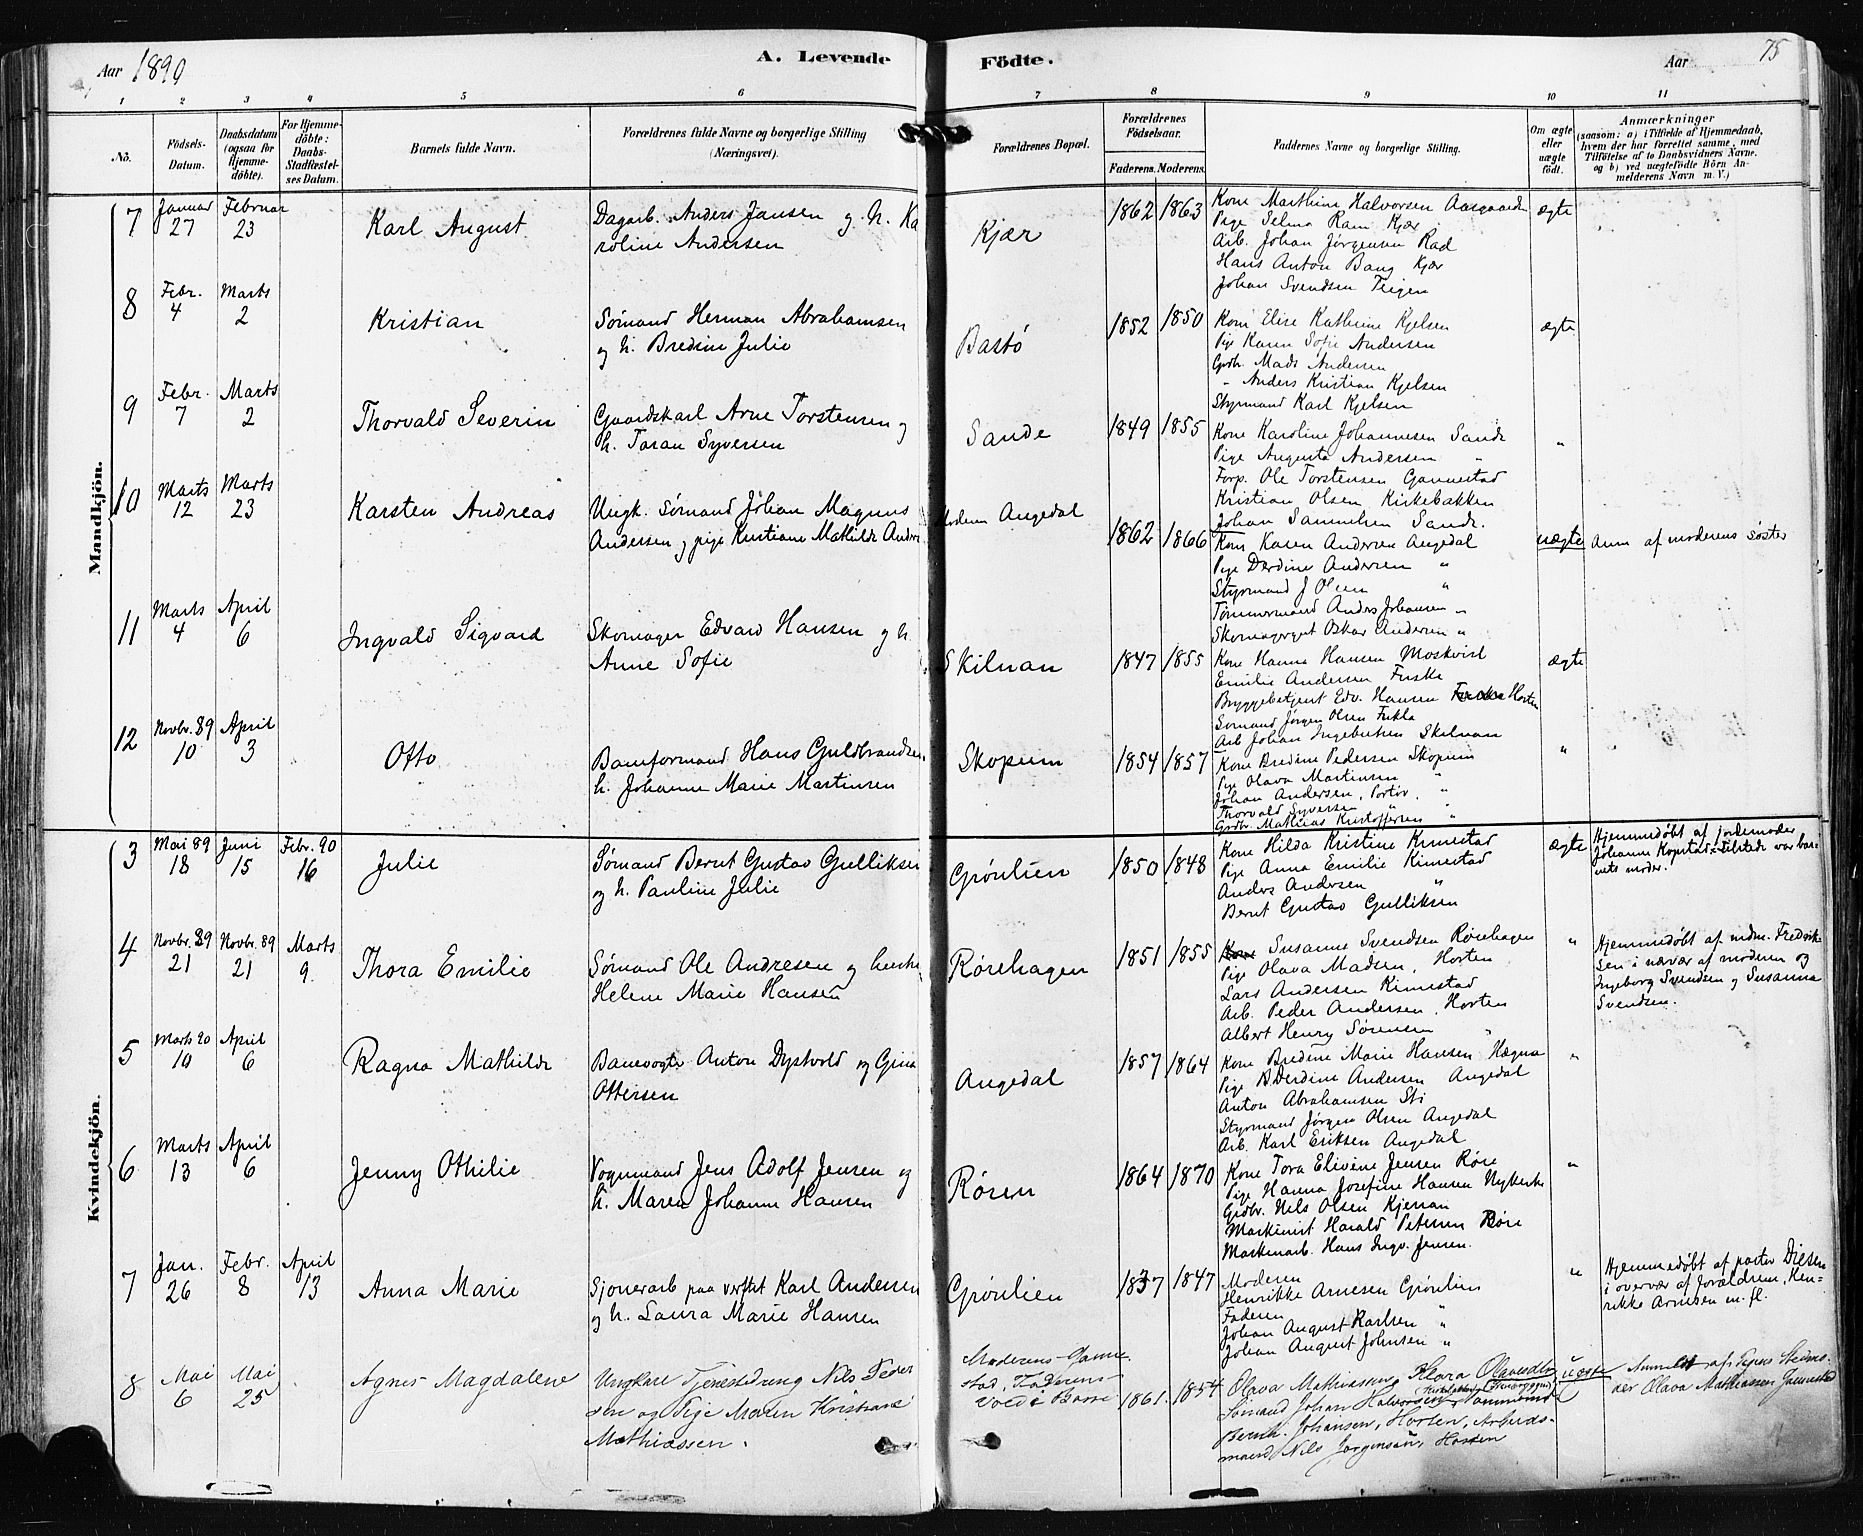 Aar 1890
A. Levende
Födte.
Aar
75
1 2 3 4 5 6 7 8 9 10 11
No.
Födsels-
Datum.
Daabsdatum
(ogsaa for
Hjemme-
döbte).
For Hjemme-
döbte:
Daabs-
Stadfæstel-
ses Datum.
Barnets fulde Navn.
Forældrenes fulde Navne og borgerlige Stilling
(Næringsvei).
Forældrenes Bopæl.
Forældrenes
Födselsaar.
Faderens. Moderens.
Faddernes Navne og borgerlige Stilling.
Om ægte
eller
uægte
födt.
Anmærkninger
(saasom: a) i Tilfælde af Hjemmedaab,
hvem der har forrettet samme, med
Tilföielse af to Daabsvidners Navne,
og b) ved uægtefödte Börn An-
melderens Navn m. V.)
Mandkjön.
7
Januar
27
Februar
23
Karl August
Dagarb. Anders Jansen og h. Ka
roline Andersen
Kjær
1862 1863
Kone Marthine Halvorsen Aasgaarden
Pige Selma Ram Kjær
Arb. Johan Jørgensen Rad
Hans Anton Bang Kjær
Johan Svendsen Teigen
ægte
8
Febr.
4
Marts
2
Kristian
Sømand Herman Abrahamsen
og h. Bredine Julie
Bastö
1852 1850
Kone Elise Kathrine Kjelsen
Pige Karen Sofie Andersen
Grdbr. Mads Andersen
" Anders Kristian Kjelsen
Styrmand Karl Kjelsen
ægte
9
Febr.
7
Marts
2
Thorvald Severin
Gaardskarl Arne Torstensen og
h. Taran Syversen
Sande
1849 1855
Kone Karoline Johannesen Sande
Pige Augusta Andersen "
Forp. Ole Torstensen Gannestad
Kristian Olsen Kirkebakken
Johan Samuelsen Sande.
"
10
Marts
12
Marts
23
Karsten Andreas
Ungk. Sømand Johan Magnus
Andersen og pige Kristiane Mathilde Anders
Moderen Angedal
1862 1866
Kone Karen Andersen Angedal
Pige Derdine Andersen "
Styrmand J Olsen "
Tømmermand Anders Johansen "
Skomagergut Oskar Andersen "
uægte
Anm. af moderens søster
11
Marts
4
April
6
Ingvald Sigvard
Skomager Edvard Hansen og h.
Anne Sofie
Skilnan
1847 1855
Kone Hanna Hansen Moskvist
Emilie Andersen Fuske
Bryggebetjent Edv. Hansen Horten
Sømand Jørgen Olsen
Arb. Johan Ingebretsen Skilnan
ægte
12
Novbr. 89
10
April
3
Otto
Baneformand Hans Guldbrandsen
h. Johanne Marie Martinsen
Skopum
1854 1857
Kone Bredine Pedersen Skopum
Pige Olava Martinsen "
Johan Andersen, Portør, "
Thorvald Syversen "
Grdbr. Mathias Kristoffersen "
"
Kvindekjön.
3
Mai 89
18
Juni
15
Febr. 90
16
Julie
Sømand Bernt Gustav Gulliksen
og h. Pauline Julie
Grönlien
1850 1848
Kone Hilda Kristine Kinnestad
Pige Anna Emilie Kinnestad
Anders Andersen "
Bernt Gustav Gulliksen
ægte
Hjemmedøbt af jordemoder
Johanne Kopstad. Tilstede var bar-
nets moder.
4
Novbr. 89
21
Novbr. 89
21
Marts
9.
Thora Emilie
Sømand Ole Andresen og hustru
Helene Marie Hansen
Rørehagen
1851 1855
Susanne Svendsen Rørehagen
Pige Olava Madsen, Horten
Lars Andersen Kinnestad
Arb. Peder Andersen, Horten
Albert Henry Sørensen "
"
Hjemmedøbt af mdm. Fredrike
sen i nærvær af moderen og
Ingeborg Svendsen og Susanna
Svendsen.
5
Marts 90
10
April
6
Ragna Mathilde
Banevogter Anton Dystvold og Gina
Ottersen
Angedal
1857 1864
Kone Bredine Marie Hansen Hægna
Pige Derdine Andersen Angedal
Anton Abrahamsen Sti
Styrmand Jørgen Olsen Angedal
Arb. Karl Eriksen Angedal
"
6
Marts
13
April
6
Jenny Othilie
Vognmand Jens Adolf Jensen og
h. Maren Johanne Hansen
Røren
1864 1870
Kone Tora Elivine Jensen Røre
Pige Hanna Josefine Hansen Nykirke
Grdbr. Nils Olsen Kjenan
Maskinist Harald Petersen Røre
Maskinarb. Hans Ingv. Jensen.
"
7
Jan.
26
Febr.
8
April
13
Anna Marie
Sjouerarb paa verftet Karl Andersen
og h. Laura Marie Hansen
Grönlien
1837 1847
Moderen
Henrikke Arnesen Grönlien
Faderen
Johan August Karlsen "
Johan August Johnsen "
"
Hjemmedøbt af pastor Dietsen
i overvær af forældrene, Hen-
rikke Arnesen m. fl.
8
Mai
6
Mai
25
Agnes Magdalene
Ungkarl Tjenestedreng Nils Peder
sen og Pige Maren Kristiane
Mathiassen.
Moderens Ganne-
stad, Faderens
Vold i Borre
1861. 1854
Olava Mathiassen, Klara Olavesdtr
Sømand Johan Halvorsen, Tømmermd
Bernh. Johansen, Horten, Arbeids-
mand Nils Jørgensen, Horten
uægte
Anmeldt af Pigens Steds-
der Olava Mathiassen Gannestad